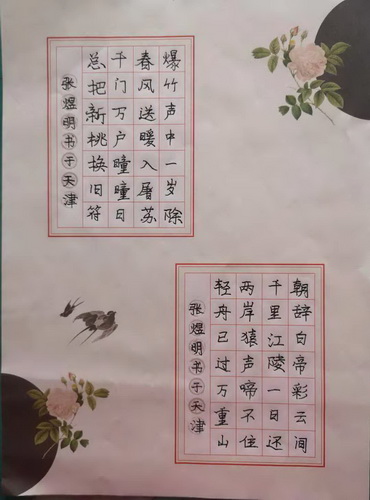 爆竹声中一岁除
春风送暖入屠苏
千门万户曈曈日
总把新桃换旧符
张煜明书于天津
朝辞白帝彩云间
千里江陵一日还
两岸猿声啼不住
轻舟已过万重山
张煜明书于天津